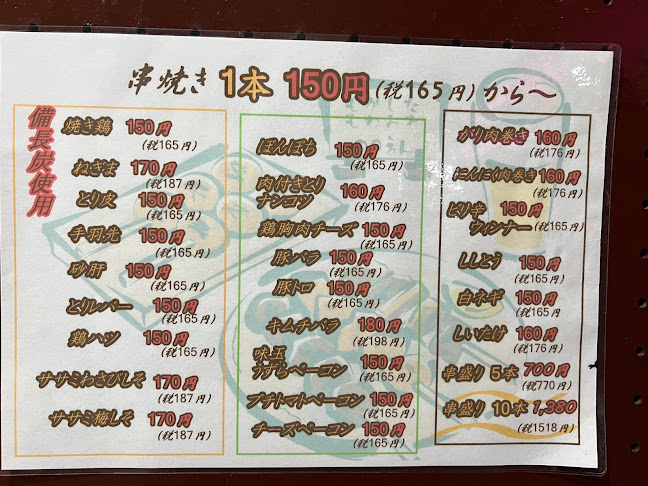 串焼き 1本 150円(税165円)から〜
備長炭使用
焼き鶏 150円
(税165円)
ねぎま 170円
(税187円)
とり皮 150円
(税165円)
手羽先 150円
(税165円)
砂肝 150円
(税165円)
とりレバー 150円
(税165円)
鶏ハツ 150円
(税165円)
ササミわさびしそ 170円
(税187円)
ササミ梅しそ 170円
(税187円)
ぼんぼち 150円
(税165円)
肉付きとり
ナンコツ 160円
(税176円)
鶏胸肉チーズ 150円
(税165円)
豚バラ 150円
(税165円)
豚トロ 150円
(税165円)
キムチバラ 180円
(税198円)
味玉
うずらベーコン 150円
(税165円)
プチトマトベーコン 150円
(税165円)
チーズベーコン 150円
(税165円)
がり肉巻き 160円
(税176円)
にんにく肉巻き 160円
(税176円)
ピリ辛 150円
ウィンナー (税165円)
ししとう 150円
(税165円)
白ネギ 150円
(税165円)
しいたけ 160円
(税176円)
串盛り 5本 700円
(税770円)
串盛り 10本 1,380
(税1518円)